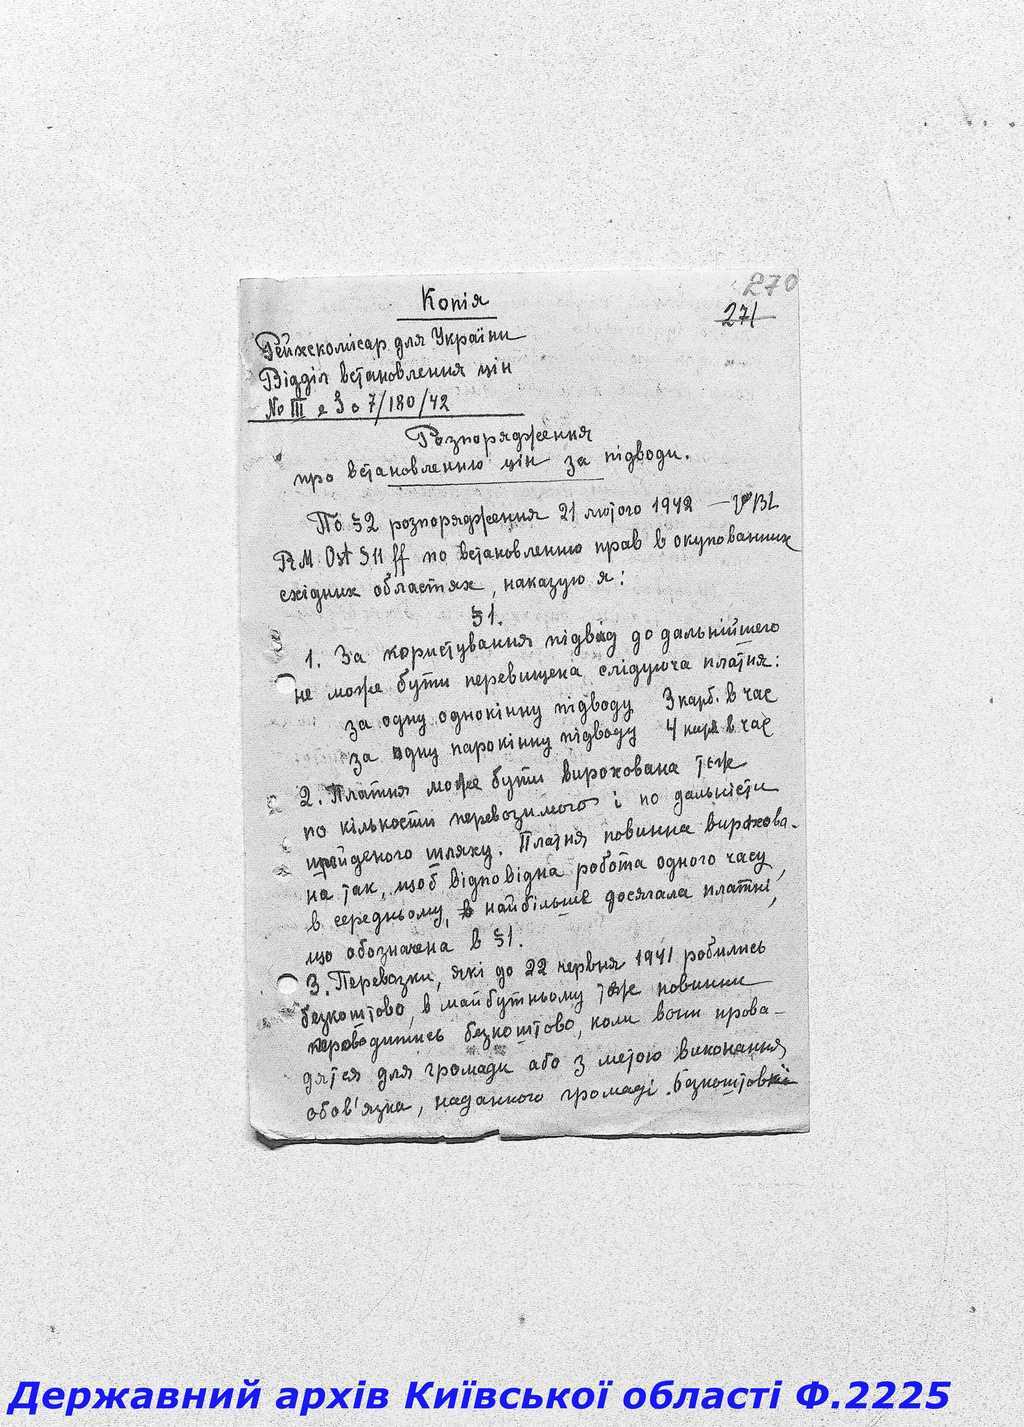 270
271
Копія
Рейхскомісар для України
Відділ встановлення цін
№ III e 3 o 7/180/42
Розпорядження
про встановленню цін за підводи.
По §2 розпорядження 21 лютого 1942 — VBL
RM Ost S 11 ff по встановленню прав в окупованних
східних областях, наказую я:
§1.
1. За користування підвід до дальнійшего
не може бути перевищена слідуюча платня:
за одну однокінну підводу 3 карб. в час
за одну парокінну підводу 4 карб в час
2. Платня може бути вирохована теж
по кількости перевозимого і по дальністи
пройденого шляху. Платня повинна вирохова-
на так, щоб відповідна робота одного часу,
в середньому, найбільше досягала платні,
що обозначена в §1.
3. Перевозки, які до 22 червня 1941 робились
безкоштово, в майбутньому теж повинни
проводитись безкоштово, коли вони прова-
дятся для громади або з метою виконання
обов'язка, наданного громаді. Безкоштовні
Державний архів Київської області Ф.2225